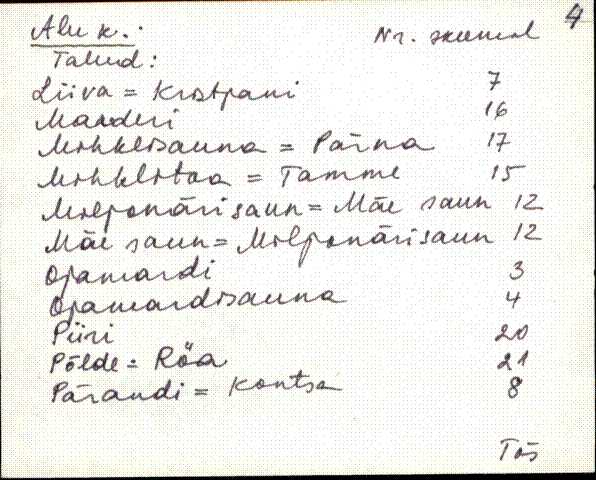 4
Alu k.:
Nr. skeemil
Talud:
Liiva = Kristpani 7
Manderi 16
Mihklisauna = Pärna 17
Mihklitoa = Tamme 15
Molponärisaun = Mäe saun 12
Mäe saun = Molponärisaun 12
Ojamardi 3
Ojamardisauna 4
Piiri 20
Põlde = Rõa 21
Pärandi = Kontsa 8